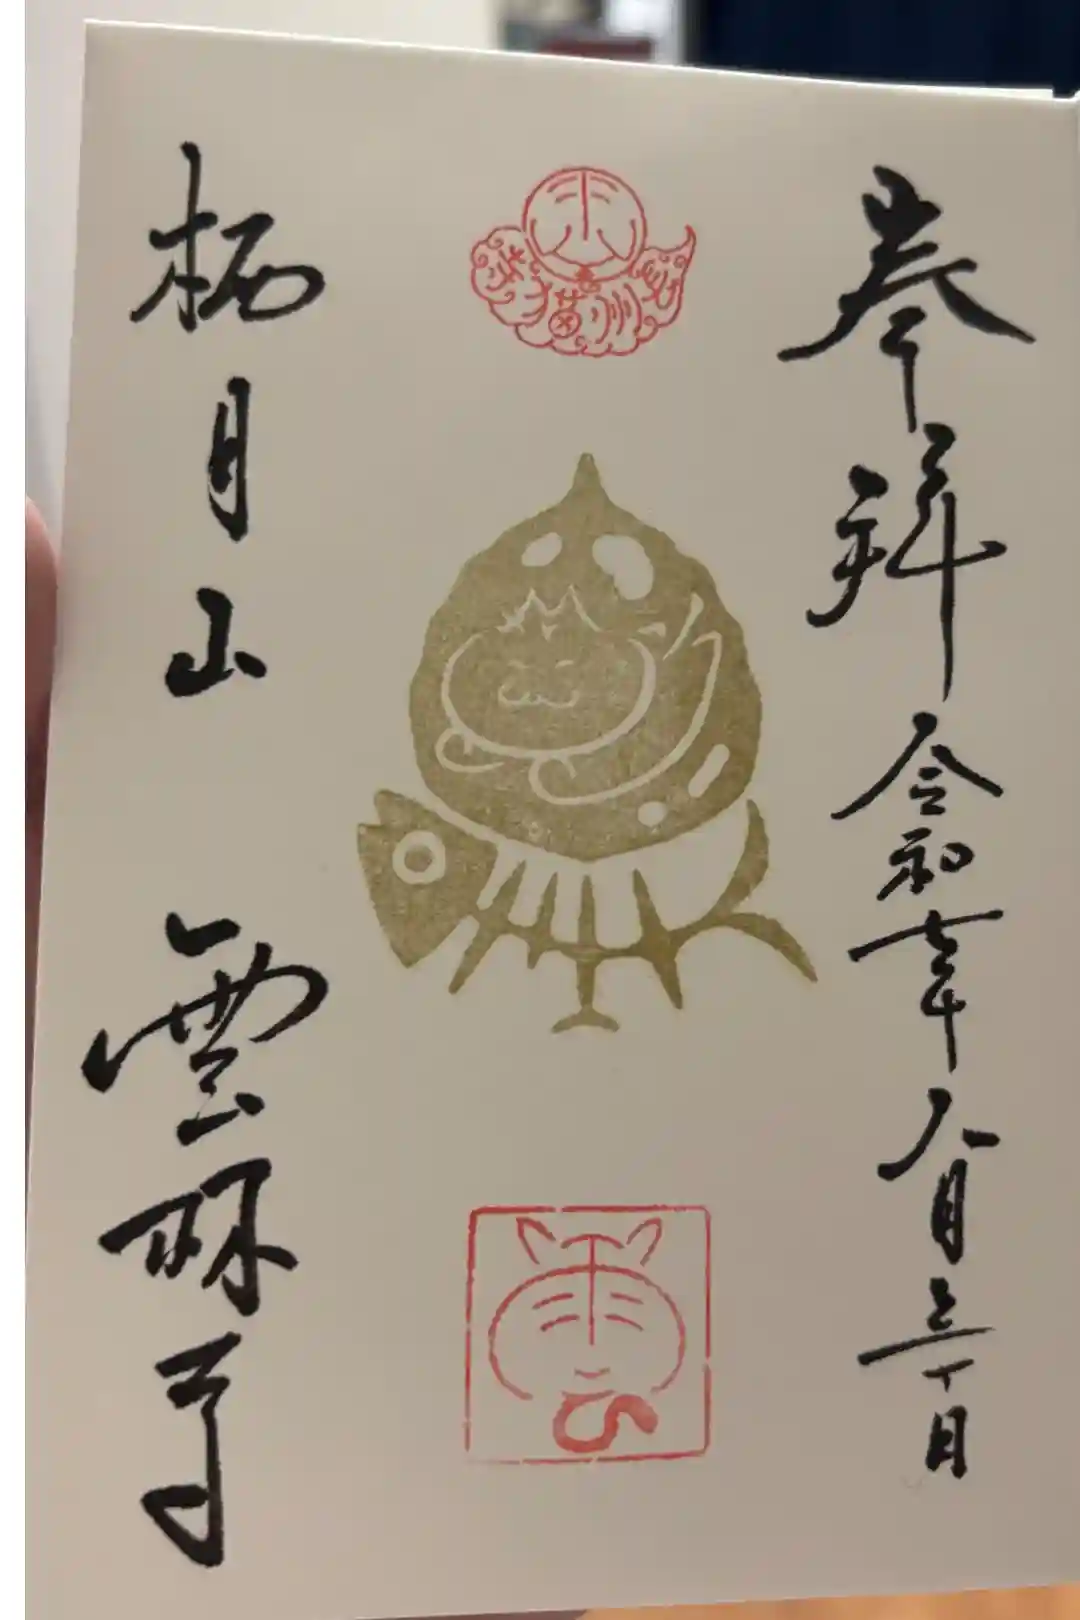 奉拝 令和七年八月三十日
栖月山 雲林寺